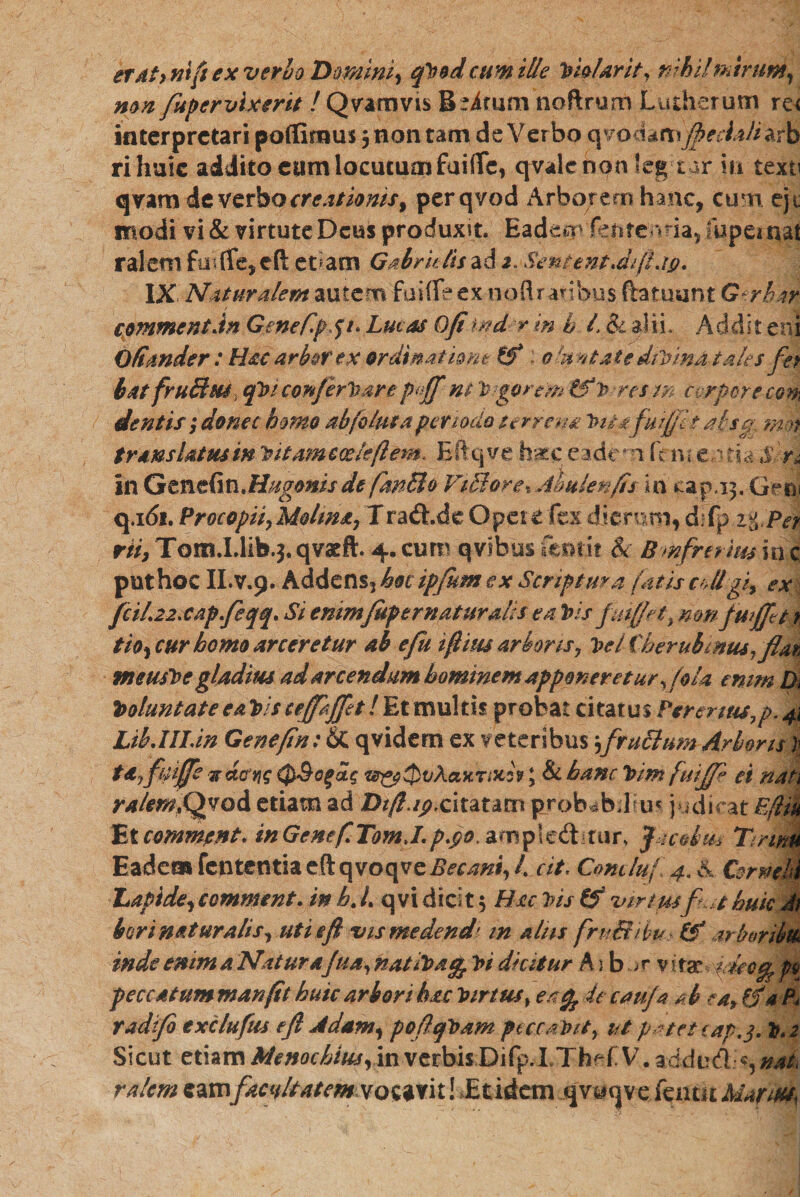 erat, nisi ex verbo Domini, qvod cum ille violarit, nihil mirum,
non supervixerit! Qvamvis Beatum nostrum Lutherum
interpretari possimus; non tam de Verbo qvodam speciali
ri huic addito eum locutum fuisse, qvale non legitur in
qvam de verbo creationis, per qvod Arborem hanc, cum
modi vi & virtute Deus produxit. Eadem sententia, supernat
ralem fuisse, est etiam Gabrielis ad 2. Sentent.dist.19.
IX. Naturalem autem fuisse ex nostratibus statuunt Gerhar
comment.in Genes.p.51. Lucas Osiander in h. l. & alii. Addit eni
Osiander: Hæc arbor ex ordinatione & voluntate divina tales fer
bat fructus, qvi conservare possent vigorem & vires in corpore
dentis; donec homo absoluta periodo terrenæ vitæ fuisset absq;
translatus in vitam cœlestem. Estqve hæc eadem sententia
in Genesin. Hugonis de sancto Victore, Abulensis in cap.13. Gen
q.161. Procopii, Molinæ, Tract.de Opere sex dierum, disp 28. Pere
rii, Tom.I.lib.3. qvæst. 4. cum qvibus sentit & Bonfrerius in c
put hoc II.v.9. Addens, hoc ipsum ex Scriptura satis colligi, ex
scil.22.cap.seqq. Si enim supernaturalis ea vis fuisset, non fuisset
tio, cur homo arceretur ab esu istius arboris, vel Cherubinus,
meusve gladius ad arcendum hominem apponeretur, sola enim
voluntate ea vis cessasset! Et multis probat citatus Pererius, p.
Lib.III.in Genesin: & qvidem ex veteribus; fructum Arboris
tæ, fuisse πάσης φθορᾶς προφυλακτικὸν; & hanc vim fuisse ei nat
ralem. Qvod etiam ad Dist.19.citatam probabilius judicat Estiu
Et comment. in Genes. Tom.I. p.90. amplectitur, Jacobus Tirinu
Eadem sententia est qvoqve Becani, l. cit. Conclus. 4. & Cornelii
Lapide, comment. in h.l. qvi dicit; Hæc vis & virtus fuit huic
bori naturalis, uti est vis medendi in aliis fructibus & arboribu
inde enim a Natura sua, nativaq; vi dicitur Arbor vitæ: ideoq;
peccatum mansit huic arbori hæc virtus, eaq; de causa ab ea, & a
radiso exclusus est Adam, postqvam peccavit, ut patet cap.3. v.2
Sicut etiam Menochius, in verbis Disp.I.Thes.V. adductis,
ralem eam facultatem vocavit! Et idem qvoqve sentit Marius,